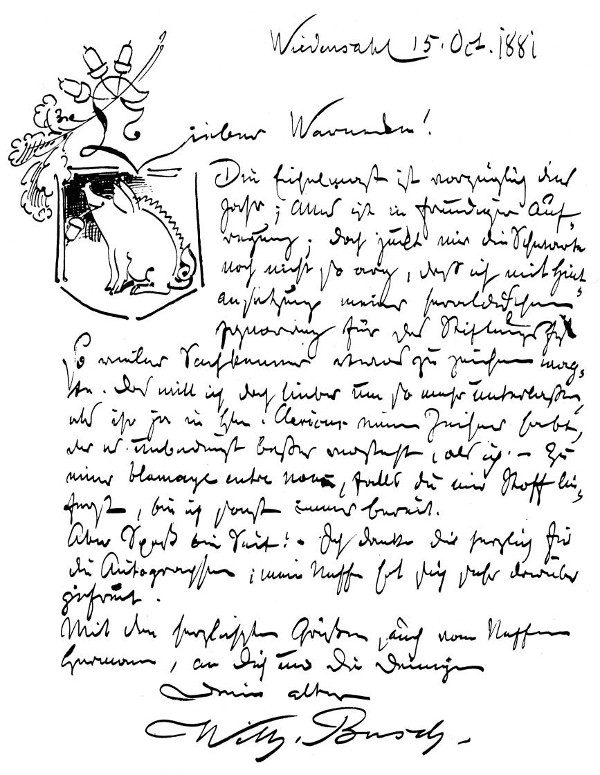 Wiedensahl 15. Oct. 1881
Lieber Warnecke!
Die Eichelmast ist vorzüglich dies
Jahr; Alles ist in freudiger Auf-
regung; doch juckt mir die Schwarte
noch nicht so arg, daß ich mit Hint-
ansetzung meiner heraldischen
Ignoranz für das Stiftungsfest
so vieler Sachkenner etwas zu zeichnen wag-
te. Das will ich doch lieber um so mehr unterlaßen,
als ihr ja in Hrn. Clericus einen Zeichner habt,
der es unbedingt beßer versteht, als ich. – Zu
einer blamage entre nous, falls du mir Stoff lie-
ferst, bin ich sonst immer bereit.
Aber Spaß bei Seit! – Ich danke dir herzlich für
die Autographen; mein Neffe hat sich sehr darüber
gefreut.
Mit den herzlichsten Grüßen, auch vom Neffen
Hermann, an Dich und die Deinigen
Dein alter
Wilh. Busch.